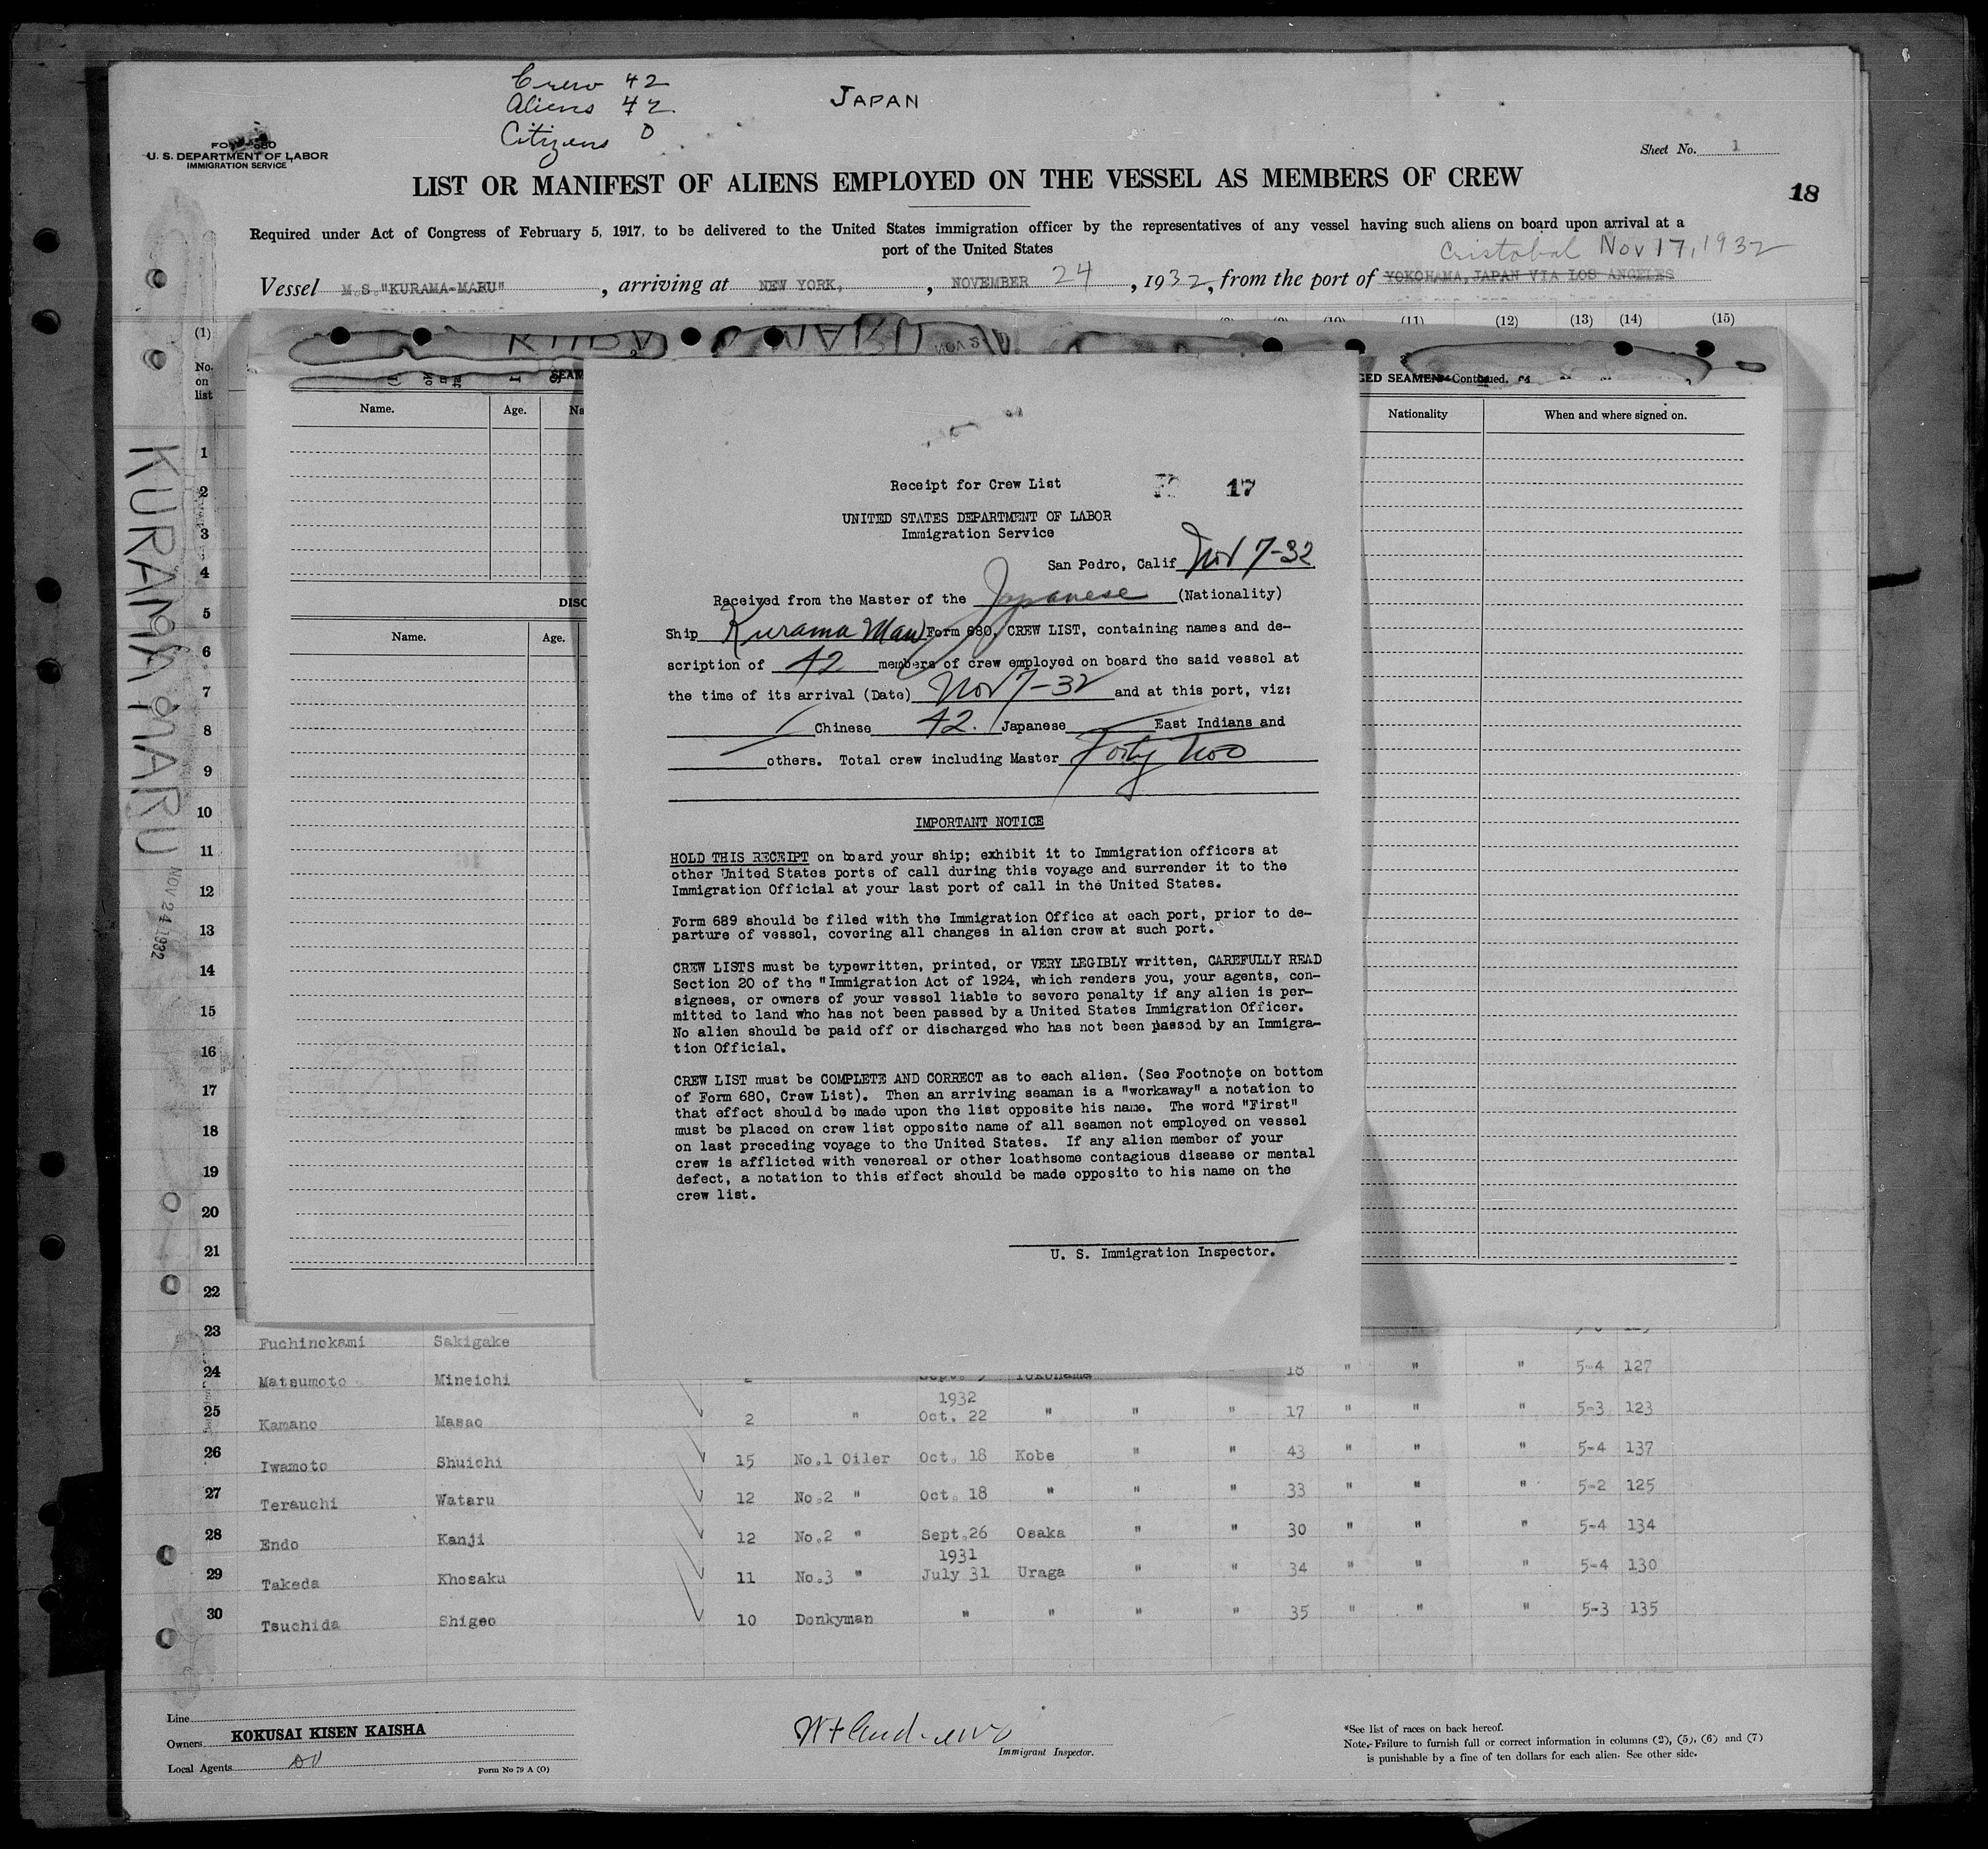 Crew 42
Aliens 42
Citizens 0
JAPAN
U. S. DEPARTMENT OF LABOR
IMMIGRATION SERVICE
Sheet No. 1
LIST OR MANIFEST OF ALIENS EMPLOYED ON THE VESSEL AS MEMBERS OF CREW
18
Required under Act of Congress of February 5, 1917, to be delivered to the United States immigration officer by the representatives of any vessel having such aliens on board upon arrival at a
port of the United States
Cristobal Nov 17, 1932
Vessel M.S. "KURAMA-MARU", arriving at NEW YORK, NOVEMBER 24, 1932, from the port of YOKOHAMA, JAPAN VIA LOS ANGELES
(1) (11) (12) (13) (14) (15)
No. on list
KURAMA MARU
NOV 24 1932
GED SEAMEN—Continued.
Name. Age. Nationality When and where signed on.
Name. Age.
Receipt for Crew List 17
UNITED STATES DEPARTMENT OF LABOR
Immigration Service
San Pedro, Calif Nov 7-32
Received from the Master of the Japanese (Nationality)
Ship Kurama Maru Form 680, CREW LIST, containing names and de-
scription of 42 members of crew employed on board the said vessel at
the time of its arrival (Date) Nov 7-32 and at this port, viz:
Chinese 42. Japanese East Indians and
others. Total crew including Master Forty two
IMPORTANT NOTICE
HOLD THIS RECEIPT on board your ship; exhibit it to Immigration officers at
other United States ports of call during this voyage and surrender it to the
Immigration Official at your last port of call in the United States.
Form 689 should be filed with the Immigration Office at each port, prior to de-
parture of vessel, covering all changes in alien crew at such port.
CREW LISTS must be typewritten, printed, or VERY LEGIBLY written, CAREFULLY READ
Section 20 of the "Immigration Act of 1924, which renders you, your agents, con-
signees, or owners of your vessel liable to severe penalty if any alien is per-
mitted to land who has not been passed by a United States Immigration Officer.
No alien should be paid off or discharged who has not been passed by an Immigra-
tion Official.
CREW LIST must be COMPLETE AND CORRECT as to each alien. (See Footnote on bottom
of Form 680, Crew List). Then an arriving seaman is a "workaway" a notation to
that effect should be made upon the list opposite his name. The word "First"
must be placed on crew list opposite name of all seamen not employed on vessel
on last preceding voyage to the United States. If any alien member of your
crew is afflicted with venereal or other loathsome contagious disease or mental
defect, a notation to this effect should be made opposite to his name on the
crew list.
U. S. Immigration Inspector.
1
2
3
4
5
6
7
8
9
10
11
12
13
14
15
16
17
18
19
20
21
22
23 Fuchinokami Sakigake
24 Matsumoto Mineichi Yokohama 18 " " " 5-4 127
1932
25 Kamano Masao 2 " Oct. 22 " " " 17 " " " 5-3 123
26 Iwamoto Shuichi 15 No.1 Oiler Oct. 18 Kobe " " 43 " " " 5-4 137
27 Terauchi Wataru 12 No.2 " Oct. 18 " " " 33 " " " 5-2 125
28 Endo Kanji 12 No.2 " Sept.26 Osaka " " 30 " " " 5-4 134
1931
29 Takeda Khosaku 11 No.3 " July 31 Uraga " " 34 " " " 5-4 130
30 Tsuchida Shigeo 10 Donkyman " " " " 35 " " " 5-3 135
Line
Owners KOKUSAI KISEN KAISHA
Local Agents
Form No 79 A (O)
Immigrant Inspector.
*See list of races on back hereof.
Note.- Failure to furnish full or correct information in columns (2), (5), (6) and (7)
is punishable by a fine of ten dollars for each alien. See other side.